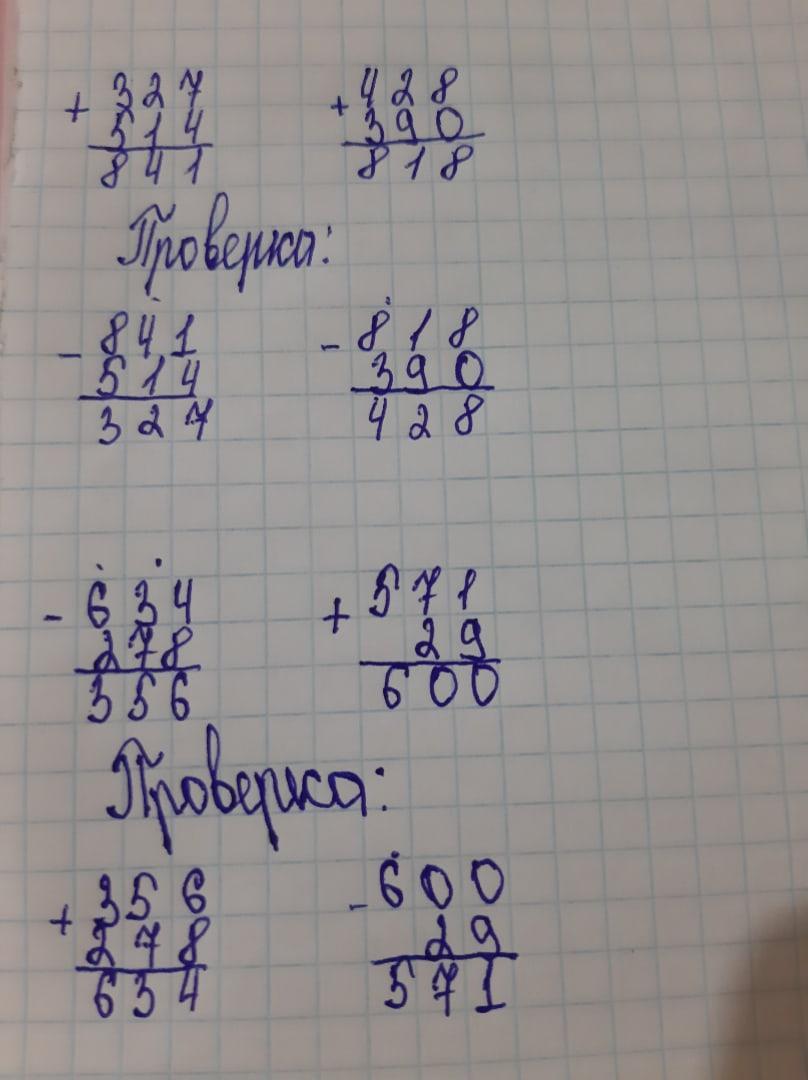 + 327 + 428
514 390
841 818
Проверка:
- 841 - 818
514 390
327 428
- 634 + 571
278 29
356 600
Проверка:
+ 356 - 600
278 29
634 571